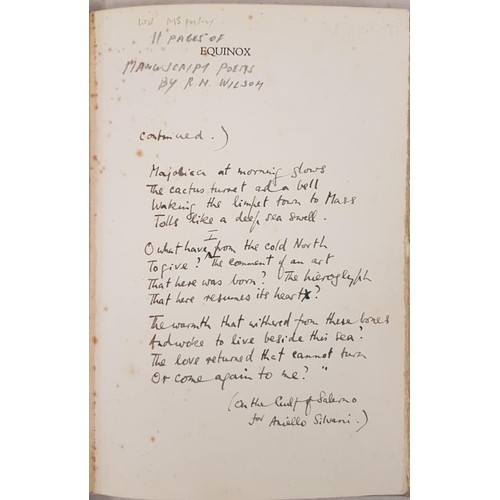 11 PAGES OF
EQUINOX
MANUSCRIPT POEMS
BY R.N. WILSON
continued.)
at morning glows
The cactus turret and a bell
Waking the limpet town to Mass
Tolls like a deep sea swell.
I
O what have from the cold North
To give? The comment of an art
That here was born? The hieroglyph
That here resumes its heart?
The warmth that withered from these bones
And woke to live beside this sea?
The love returned that cannot turn
Or come again to me?"
(On the Gulf of Salerno
for Aniello Silvani.)